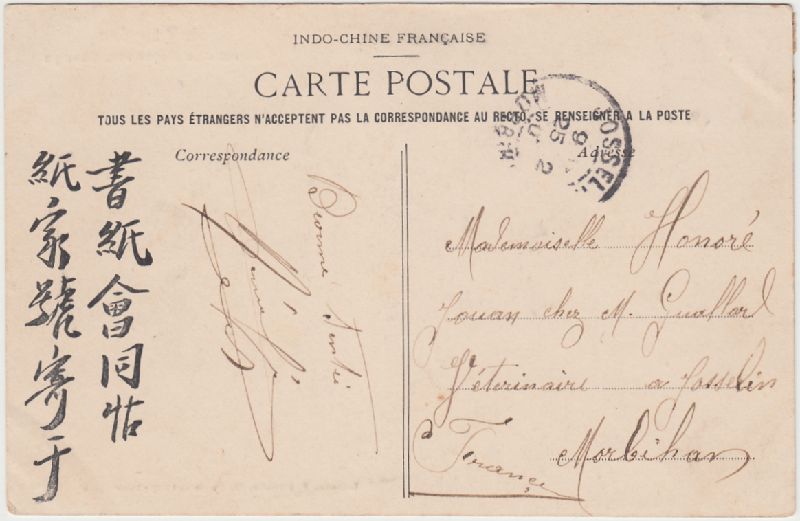 INDO-CHINE FRANÇAISE
CARTE POSTALE
TOUS LES PAYS ÉTRANGERS N'ACCEPTENT PAS LA CORRESPONDANCE AU RECTO, SE RENSEIGNER A LA POSTE
Correspondance
Adresse
JOSSEL
書紙會同
紙家號寄于
Bonne
Mademoiselle Honoré
Jouan chez M. Guallard
Véterinaire a Josselin
Morbihan
France